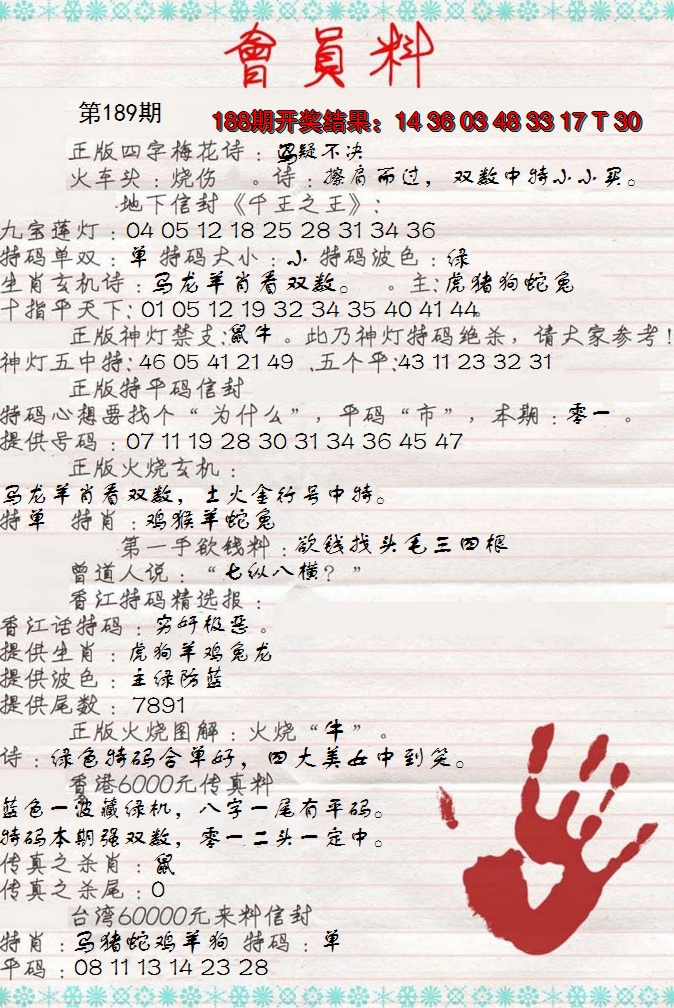 會員料
第189期
188期开奖结果：14 36 03 48 33 17 T 30
正版四字梅花诗：迟疑不决
火车头：烧伤 。诗：擦肩而过，双数中特小小买。
地下信封《千王之王》：
九宝莲灯：04 05 12 18 25 28 31 34 36
特码单双：单 特码大小：小 特码波色：绿
生肖玄机诗：马龙羊肖看双数。 。主：虎猪狗蛇兔
十指平天下：01 05 12 19 32 34 35 40 41 44。
正版神灯禁支：鼠牛 。此乃神灯特码绝杀，请大家参考！
神灯五中特：46 05 41 21 49 .五个平：43 11 23 32 31
正版特平码信封
特码心想要找个“为什么”，平码“市”，本期：零一 。
提供号码：07 11 19 28 30 31 34 36 45 47
正版火烧玄机：
马龙羊肖看双数，土火金行号中特。
特单 特肖：鸡猴羊蛇兔
第一手欲钱料：欲钱找头毛三四根
曾道人说：“七纵八横？”
香江特码精选报：
香江话特码：穷奸极恶。
提供生肖：虎狗羊鸡兔龙
提供波色：主绿防蓝
提供尾数：7891
正版火烧图解：火烧“牛”。
诗：绿色特码合单好，四大美女中到笑。
香港6000元传真料
蓝色一波藏绿机，八字一尾有平码。
特码本期强双数，零一二头一定中。
传真之杀肖：鼠
传真之杀尾：0
台湾60000元来料信封
特肖：马猪蛇鸡羊狗 特码：单
平码：08 11 13 14 23 28